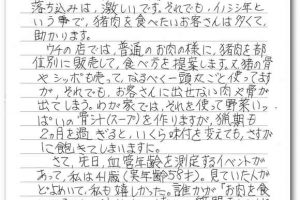 落ち込みは、激しいです。それでも、イノシシ年と
いう事で、猪肉を食べたいお客さんは多くて、
助かります。
ウチの店では、普通のお肉の様に、猪肉を部
位別に販売して、食べ方を提案します。又猪の骨
やシッポも売って、なるべく一頭丸ごと使ってます
が、それでも、お客さんに出せない肉や骨が
出てしまう。わが家では、それを使って野菜いっ
ぱいの骨汁(スープ)を作りますが、猟期も
2ヵ月を過ぎると、いくら味付を変えても、さすが
に飽きてしまいますに。
さて、先日、血管年齢を測定するイベントが
あって、私は41歳(実年齢58才)。見ていた人が
どよめいて、私も嬉しかった。誰かが「お肉を食